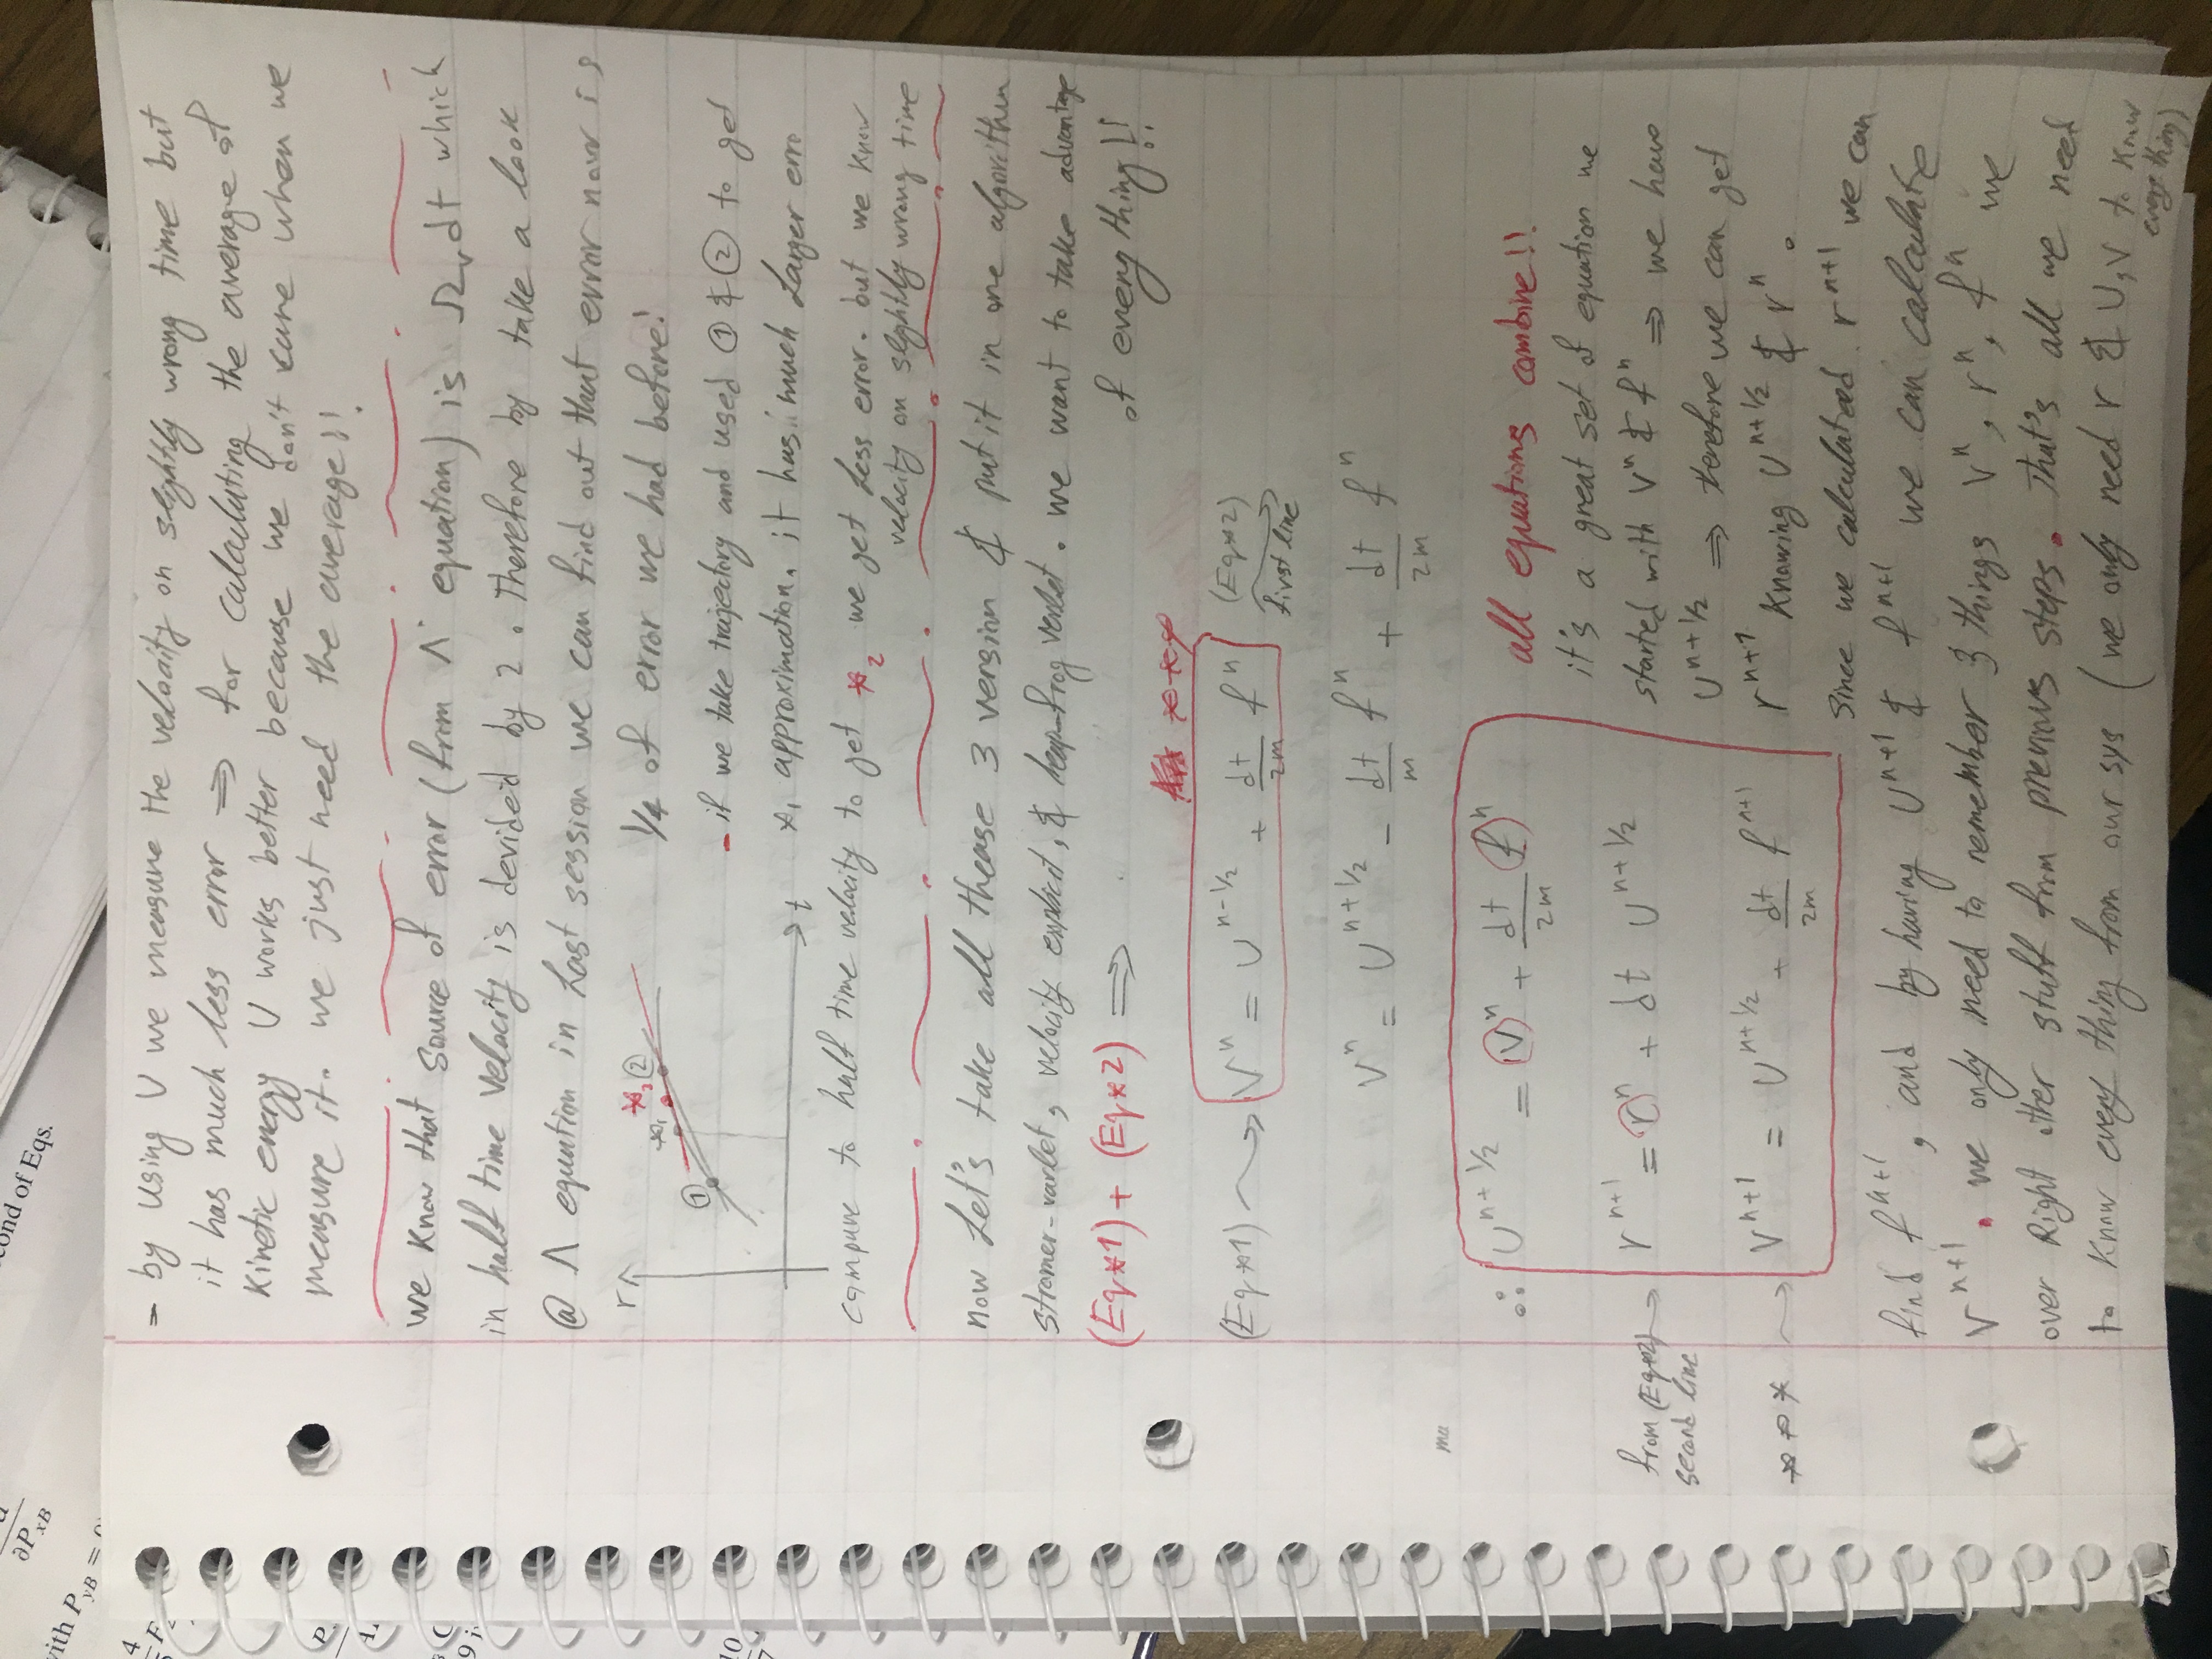 ∂P_xB
cond of Eqs.
with P_yB = 0
- by using U we measure the velocity on slightly wrong time but
it has much less error ⇒ for calculating the average of
kinetic energy U works better because we don't care when we
measure it. we just need the average!!
we know that source of error (from Λ equation) is Ω_v dt which
in half time velocity is devided by 2. Therefore by take a look
@ Λ equation in last session we can find out that error now is
1/4 of error we had before!
r
*₁
*₂
②
①
t
- if we take trajectory and used ① & ② to get
*₁ approximation. it has much larger erro
compare to half time velocity to get *₂ we get less error. but we know
velocity on slightly wrong time
now let's take all thease 3 version & put it in one algorithm
stromer-varlet, velocity explicit, & leap-frog verlet. we want to take advantage
of every thing!!
(Eq*1) + (Eq*2) ⇒
***
(Eq*1) → V^n = U^{n-1/2} + dt/2m f^n (Eq*2) first line
V^n = U^{n+1/2} - dt/m f^n + dt/2m f^n
ma
∴ U^{n+1/2} = V^n + dt/2m f^n
from (Eq*2) second line → r^{n+1} = r^n + dt U^{n+1/2}
*** → V^{n+1} = U^{n+1/2} + dt/2m f^{n+1}
all equations combine!!
it's a great set of equation we
started with V^n & f^n ⇒ we have
U^{n+1/2} ⇒ therefore we can get
r^{n+1} knowing U^{n+1/2} & r^n.
since we calculateed r^{n+1} we can
find f^{n+1}, and by having U^{n+1} & f^{n+1} we can calculate
V^{n+1}. we only need to remember 3 things V^n, r^n, f^n we
over Right other stuff from previous steps. That's all we need
to know every thing from our sys (we only need r & U,V to know
every thing)